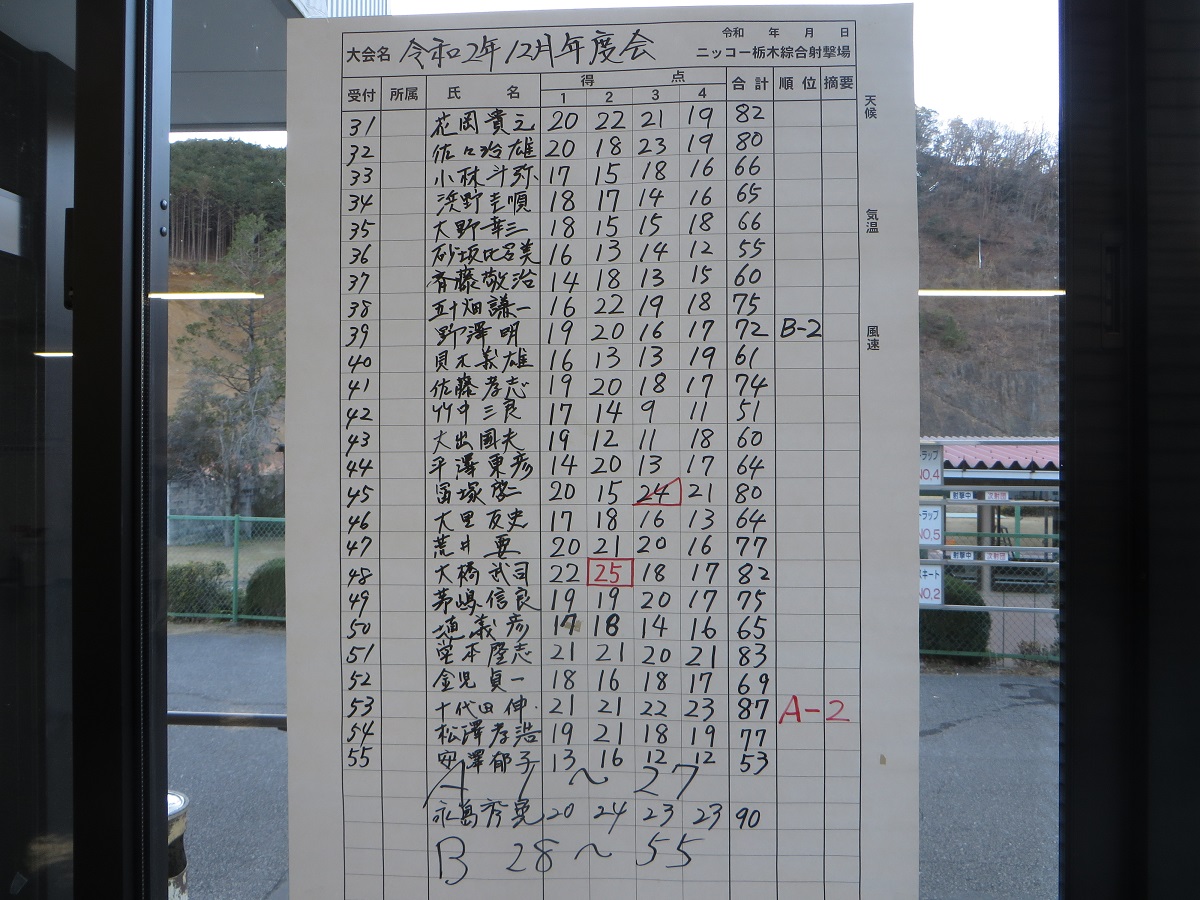 令和 年 月 日
大会名 令和2年12月年度会 ニッコー栃木綜合射撃場
受付 所属 氏 名 得 点 合計 順位 摘要
1 2 3 4
31 花岡貴之 20 22 21 19 82
32 佐々玲雄 20 18 23 19 80
33 小林斗弥 17 15 18 16 66
34 浜野圭順 18 17 14 16 65
35 大野幸三 18 15 15 18 66
36 砂坂比呂美 16 13 14 12 55
37 斉藤敬治 14 18 13 15 60
38 五十畑謙一 16 22 19 18 75
39 野澤明 19 20 16 17 72 B-2
40 貝木義雄 16 13 13 19 61
41 佐藤孝志 19 20 18 17 74
42 竹中三良 17 14 9 11 51
43 大出国夫 19 12 11 18 60
44 平澤東彦 14 20 13 17 64
45 冨塚啓二 20 15 24 21 80
46 大里友史 17 18 16 13 64
47 荒井要 20 21 20 16 77
48 大橋武司 22 25 18 17 82
49 茅嶋信良 19 19 20 17 75
50 義彦 17 18 14 16 65
51 堂本隆志 21 21 20 21 83
52 金児貞一 18 16 18 17 69
53 十代田伸 21 21 22 23 87 A-2
54 松澤孝浩 19 21 18 19 77
55 安澤郁子 13 16 12 12 53
A 1～27
永島秀晃 20 24 23 23 90
B 28～55
天候
気温
風速
トラップ
NO.4
射撃中 次射団
トラップ
NO.5
射撃中 次射団
スキート
NO.2